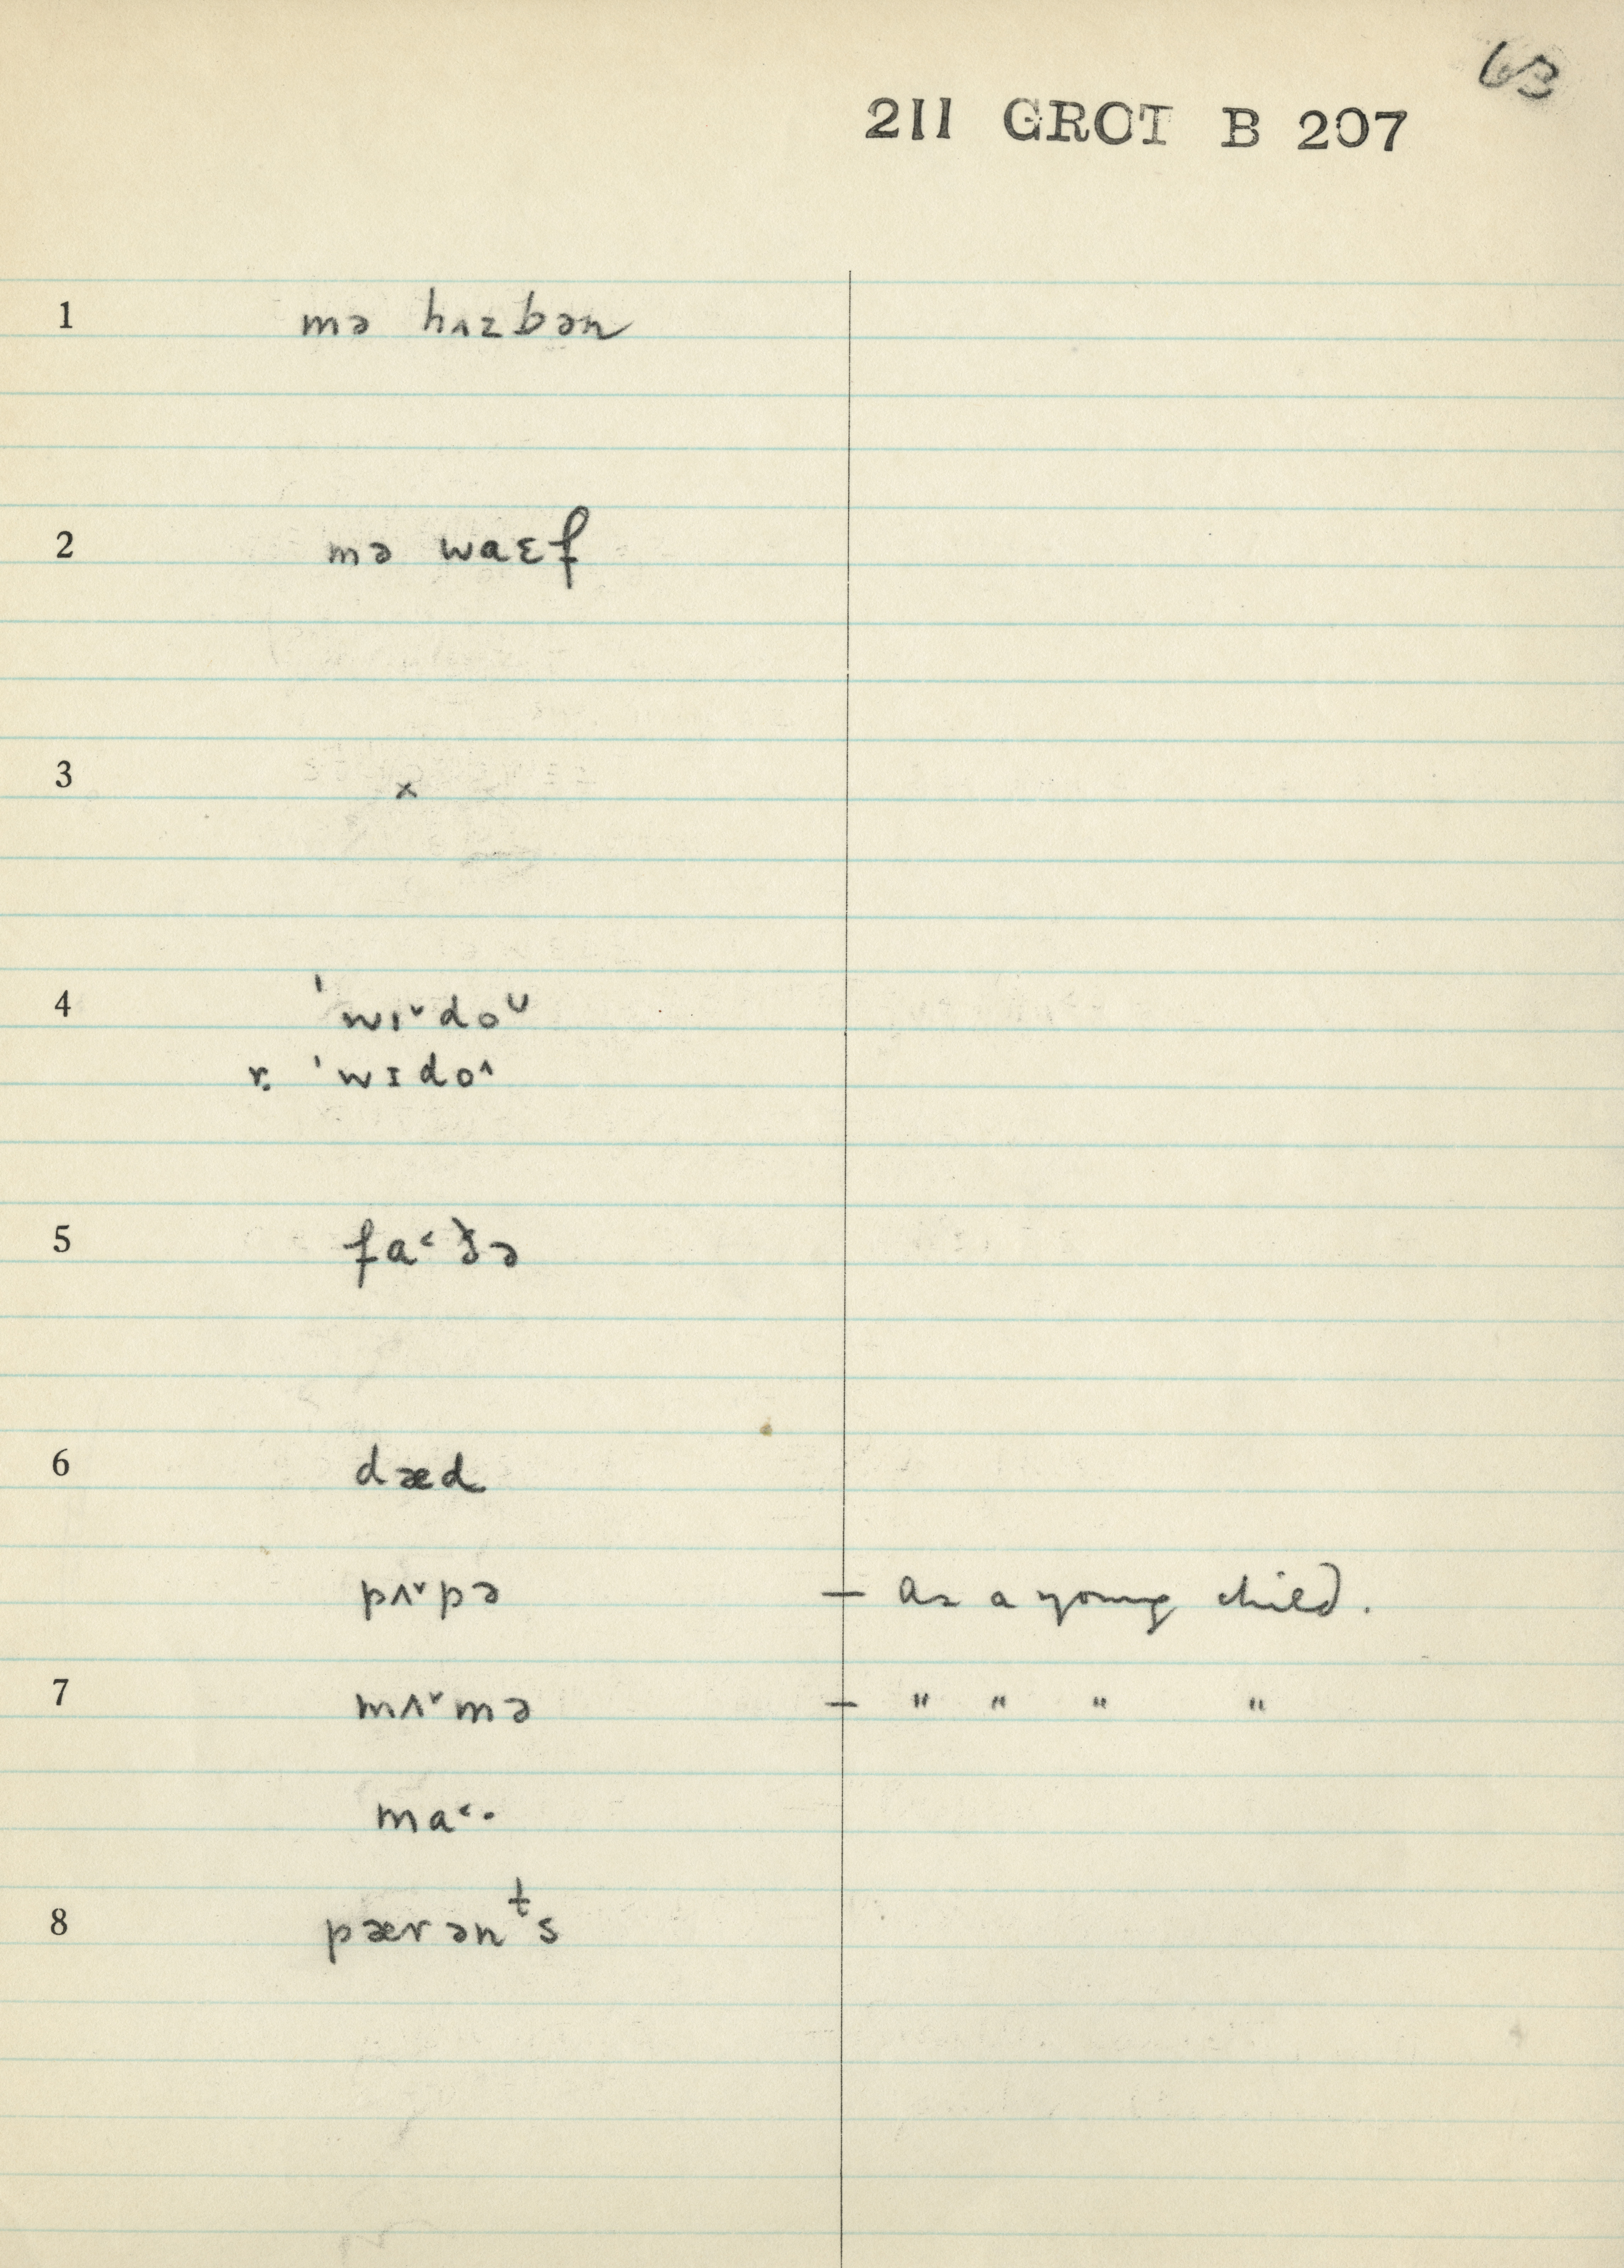 63
211 GROT B 207
1 mə hʌzbən
2 mə waɛf
3 x
4 ˈwɪ˅doᶷ
r. ˈwɪdo˄
5 fa˂ðə
6 dæd
pʌ˅pə — as a young child.
7 mʌ˅mə — " " " "
ma˂·
8 pærənᵗs